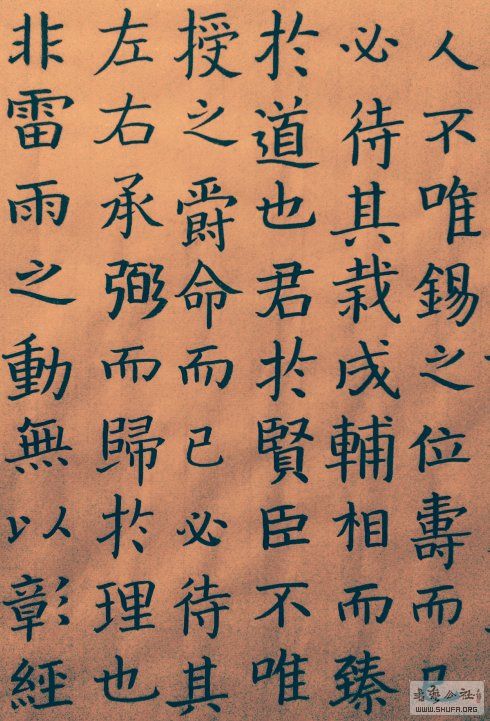 人不唯錫之位壽而已
必待其栽成輔相而臻
於道也君於賢臣不唯
授之爵命而已必待其
左右承弼而歸於理也
非雷雨之動無以彰經
WWW.SHUFA.ORG